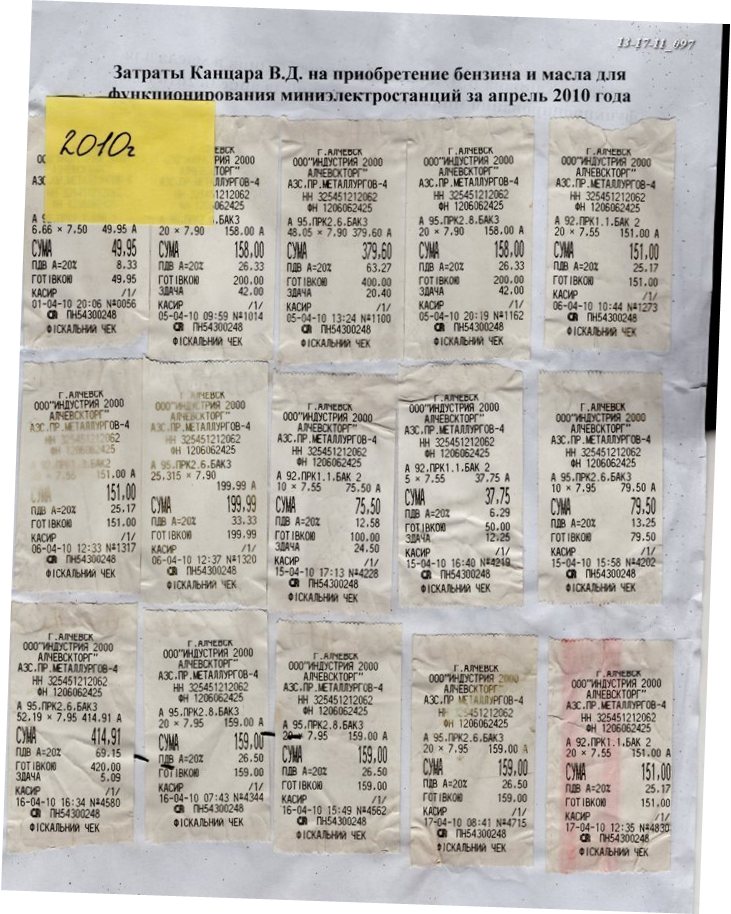 13-17-11_697
Затраты Канцара В.Д. на приобретение бензина и масла для
функционирования миниэлектростанций за апрель 2010 года
2010г
6.66 × 7.50 49.95 А
СУМА 49,95
ПДВ А=20% 8.33
ГОТІВКОЮ 49.95
КАСИР /1/
01-04-10 20:06 №0056
ПН54300248
ФІСКАЛЬНИЙ ЧЕК
20 × 7.90 158.00 А
СУМА 158,00
ПДВ А=20% 26.33
ГОТІВКОЮ 200.00
ЗДАЧА 42.00
КАСИР /1/
05-04-10 09:59 №1014
ПН54300248
ФІСКАЛЬНИЙ ЧЕК
Г.АЛЧЕВСК
ООО"ИНДУСТРИЯ 2000
АЛЧЕВСКТОРГ"
АЗС,ПР.МЕТАЛЛУРГОВ-4
НН 325451212062
ФН 1206062425
А 95.ПРК2.6.БАК3
48.05 × 7.90 379.60 А
СУМА 379,60
ПДВ А=20% 63.27
ГОТІВКОЮ 400.00
ЗДАЧА 20.40
КАСИР /1/
05-04-10 13:24 №1100
ПН54300248
ФІСКАЛЬНИЙ ЧЕК
Г.АЛЧЕВСК
ООО"ИНДУСТРИЯ 2000
АЛЧЕВСКТОРГ"
АЗС,ПР.МЕТАЛЛУРГОВ-4
НН 325451212062
ФН 1206062425
А 95.ПРК2.6.БАК3
20 × 7.90 158.00 А
СУМА 158,00
ПДВ А=20% 26.33
ГОТІВКОЮ 200.00
ЗДАЧА 42.00
КАСИР /1/
05-04-10 20:19 №1162
ПН54300248
ФІСКАЛЬНИЙ ЧЕК
Г.АЛЧЕВСК
ООО"ИНДУСТРИЯ 2000
АЛЧЕВСКТОРГ"
АЗС,ПР.МЕТАЛЛУРГОВ-4
НН 325451212062
ФН 1206062425
А 92.ПРК1.1.БАК 2
20 × 7.55 151.00 А
СУМА 151,00
ПДВ А=20% 25.17
ГОТІВКОЮ 151.00
КАСИР /1/
06-04-10 10:44 №1273
ПН54300248
ФІСКАЛЬНИЙ ЧЕК
Г.АЛЧЕВСК
ООО"ИНДУСТРИЯ 2000
АЛЧЕВСКТОРГ"
АЗС,ПР.МЕТАЛЛУРГОВ-4
НН 325451212062
ФН 1206062425
7.55 151.00 А
СУМА 151,00
ПДВ А=20% 25.17
ГОТІВКОЮ 151.00
КАСИР /1/
06-04-10 12:33 №1317
ПН54300248
ФІСКАЛЬНИЙ ЧЕК
Г.АЛЧЕВСК
ООО"ИНДУСТРИЯ 2000
АЛЧЕВСКТОРГ"
АЗС,ПР.МЕТАЛЛУРГОВ-4
НН 325451212062
ФН 1206062425
А 95.ПРК2.6.БАК3
25.315 × 7.90
199.99 А
СУМА 199,99
ПДВ А=20% 33.33
ГОТІВКОЮ 199.99
КАСИР /1/
06-04-10 12:37 №1320
ПН54300248
ФІСКАЛЬНИЙ ЧЕК
Г.АЛЧЕВСК
ООО"ИНДУСТРИЯ 2000
АЛЧЕВСКТОРГ"
АЗС,ПР.МЕТАЛЛУРГОВ-4
НН 325451212062
ФН 1206062425
А 92.ПРК1.1.БАК 2
10 × 7.55 75.50 А
СУМА 75,50
ПДВ А=20% 12.58
ГОТІВКОЮ 100.00
ЗДАЧА 24.50
КАСИР /1/
15-04-10 17:13 №4228
ПН54300248
ФІСКАЛЬНИЙ ЧЕК
Г.АЛЧЕВСК
ООО"ИНДУСТРИЯ 2000
АЛЧЕВСКТОРГ"
АЗС,ПР.МЕТАЛЛУРГОВ-4
НН 325451212062
ФН 1206062425
А 92.ПРК1.1.БАК 2
5 × 7.55 37.75 А
СУМА 37,75
ПДВ А=20% 6.29
ГОТІВКОЮ 50.00
ЗДАЧА 12.25
КАСИР /1/
15-04-10 16:40 №4219
ПН54300248
ФІСКАЛЬНИЙ ЧЕК
Г.АЛЧЕВСК
ООО"ИНДУСТРИЯ 2000
АЛЧЕВСКТОРГ"
АЗС,ПР.МЕТАЛЛУРГОВ-4
НН 325451212062
ФН 1206062425
А 95.ПРК2.6.БАК3
10 × 7.95 79.50 А
СУМА 79,50
ПДВ А=20% 13.25
ГОТІВКОЮ 79.50
КАСИР /1/
15-04-10 15:58 №4202
ПН54300248
ФІСКАЛЬНИЙ ЧЕК
Г.АЛЧЕВСК
ООО"ИНДУСТРИЯ 2000
АЛЧЕВСКТОРГ"
АЗС,ПР.МЕТАЛЛУРГОВ-4
НН 325451212062
ФН 1206062425
А 95.ПРК2.6.БАК3
52.19 × 7.95 414.91 А
СУМА 414,91
ПДВ А=20% 69.15
ГОТІВКОЮ 420.00
ЗДАЧА 5.09
КАСИР /1/
16-04-10 16:34 №4580
ПН54300248
ФІСКАЛЬНИЙ ЧЕК
Г.АЛЧЕВСК
ООО"ИНДУСТРИЯ 2000
АЛЧЕВСКТОРГ"
АЗС,ПР.МЕТАЛЛУРГОВ-4
НН 325451212062
ФН 1206062425
А 95.ПРК2.8.БАК3
20 × 7.95 159.00 А
СУМА 159,00
ПДВ А=20% 26.50
ГОТІВКОЮ 159.00
КАСИР /1/
16-04-10 07:43 №4344
ПН54300248
ФІСКАЛЬНИЙ ЧЕК
Г.АЛЧЕВСК
ООО"ИНДУСТРИЯ 2000
АЛЧЕВСКТОРГ"
АЗС,ПР.МЕТАЛЛУРГОВ-4
НН 325451212062
ФН 1206062425
А 95.ПРК2.8.БАК3
20 × 7.95 159.00 А
СУМА 159,00
ПДВ А=20% 26.50
ГОТІВКОЮ 159.00
КАСИР /1/
16-04-10 15:49 №4562
ПН54300248
ФІСКАЛЬНИЙ ЧЕК
Г.АЛЧЕВСК
ООО"ИНДУСТРИЯ 2000
АЛЧЕВСКТОРГ"
АЗС,ПР.МЕТАЛЛУРГОВ-4
НН 325451212062
ФН 1206062425
А 95.ПРК2.8.БАК3
20 × 7.95 159.00 А
СУМА 159,00
ПДВ А=20% 26.50
ГОТІВКОЮ 159.00
КАСИР /1/
17-04-10 08:41 №4715
ПН54300248
ФІСКАЛЬНИЙ ЧЕК
Г.АЛЧЕВСК
ООО"ИНДУСТРИЯ 2000
АЛЧЕВСКТОРГ"
АЗС,ПР.МЕТАЛЛУРГОВ-4
НН 325451212062
ФН 1206062425
А 92.ПРК1.1.БАК 2
20 × 7.55 151.00 А
СУМА 151,00
ПДВ А=20% 25.17
ГОТІВКОЮ 151.00
КАСИР /1/
17-04-10 12:35 №4830
ПН54300248
ФІСКАЛЬНИЙ ЧЕК